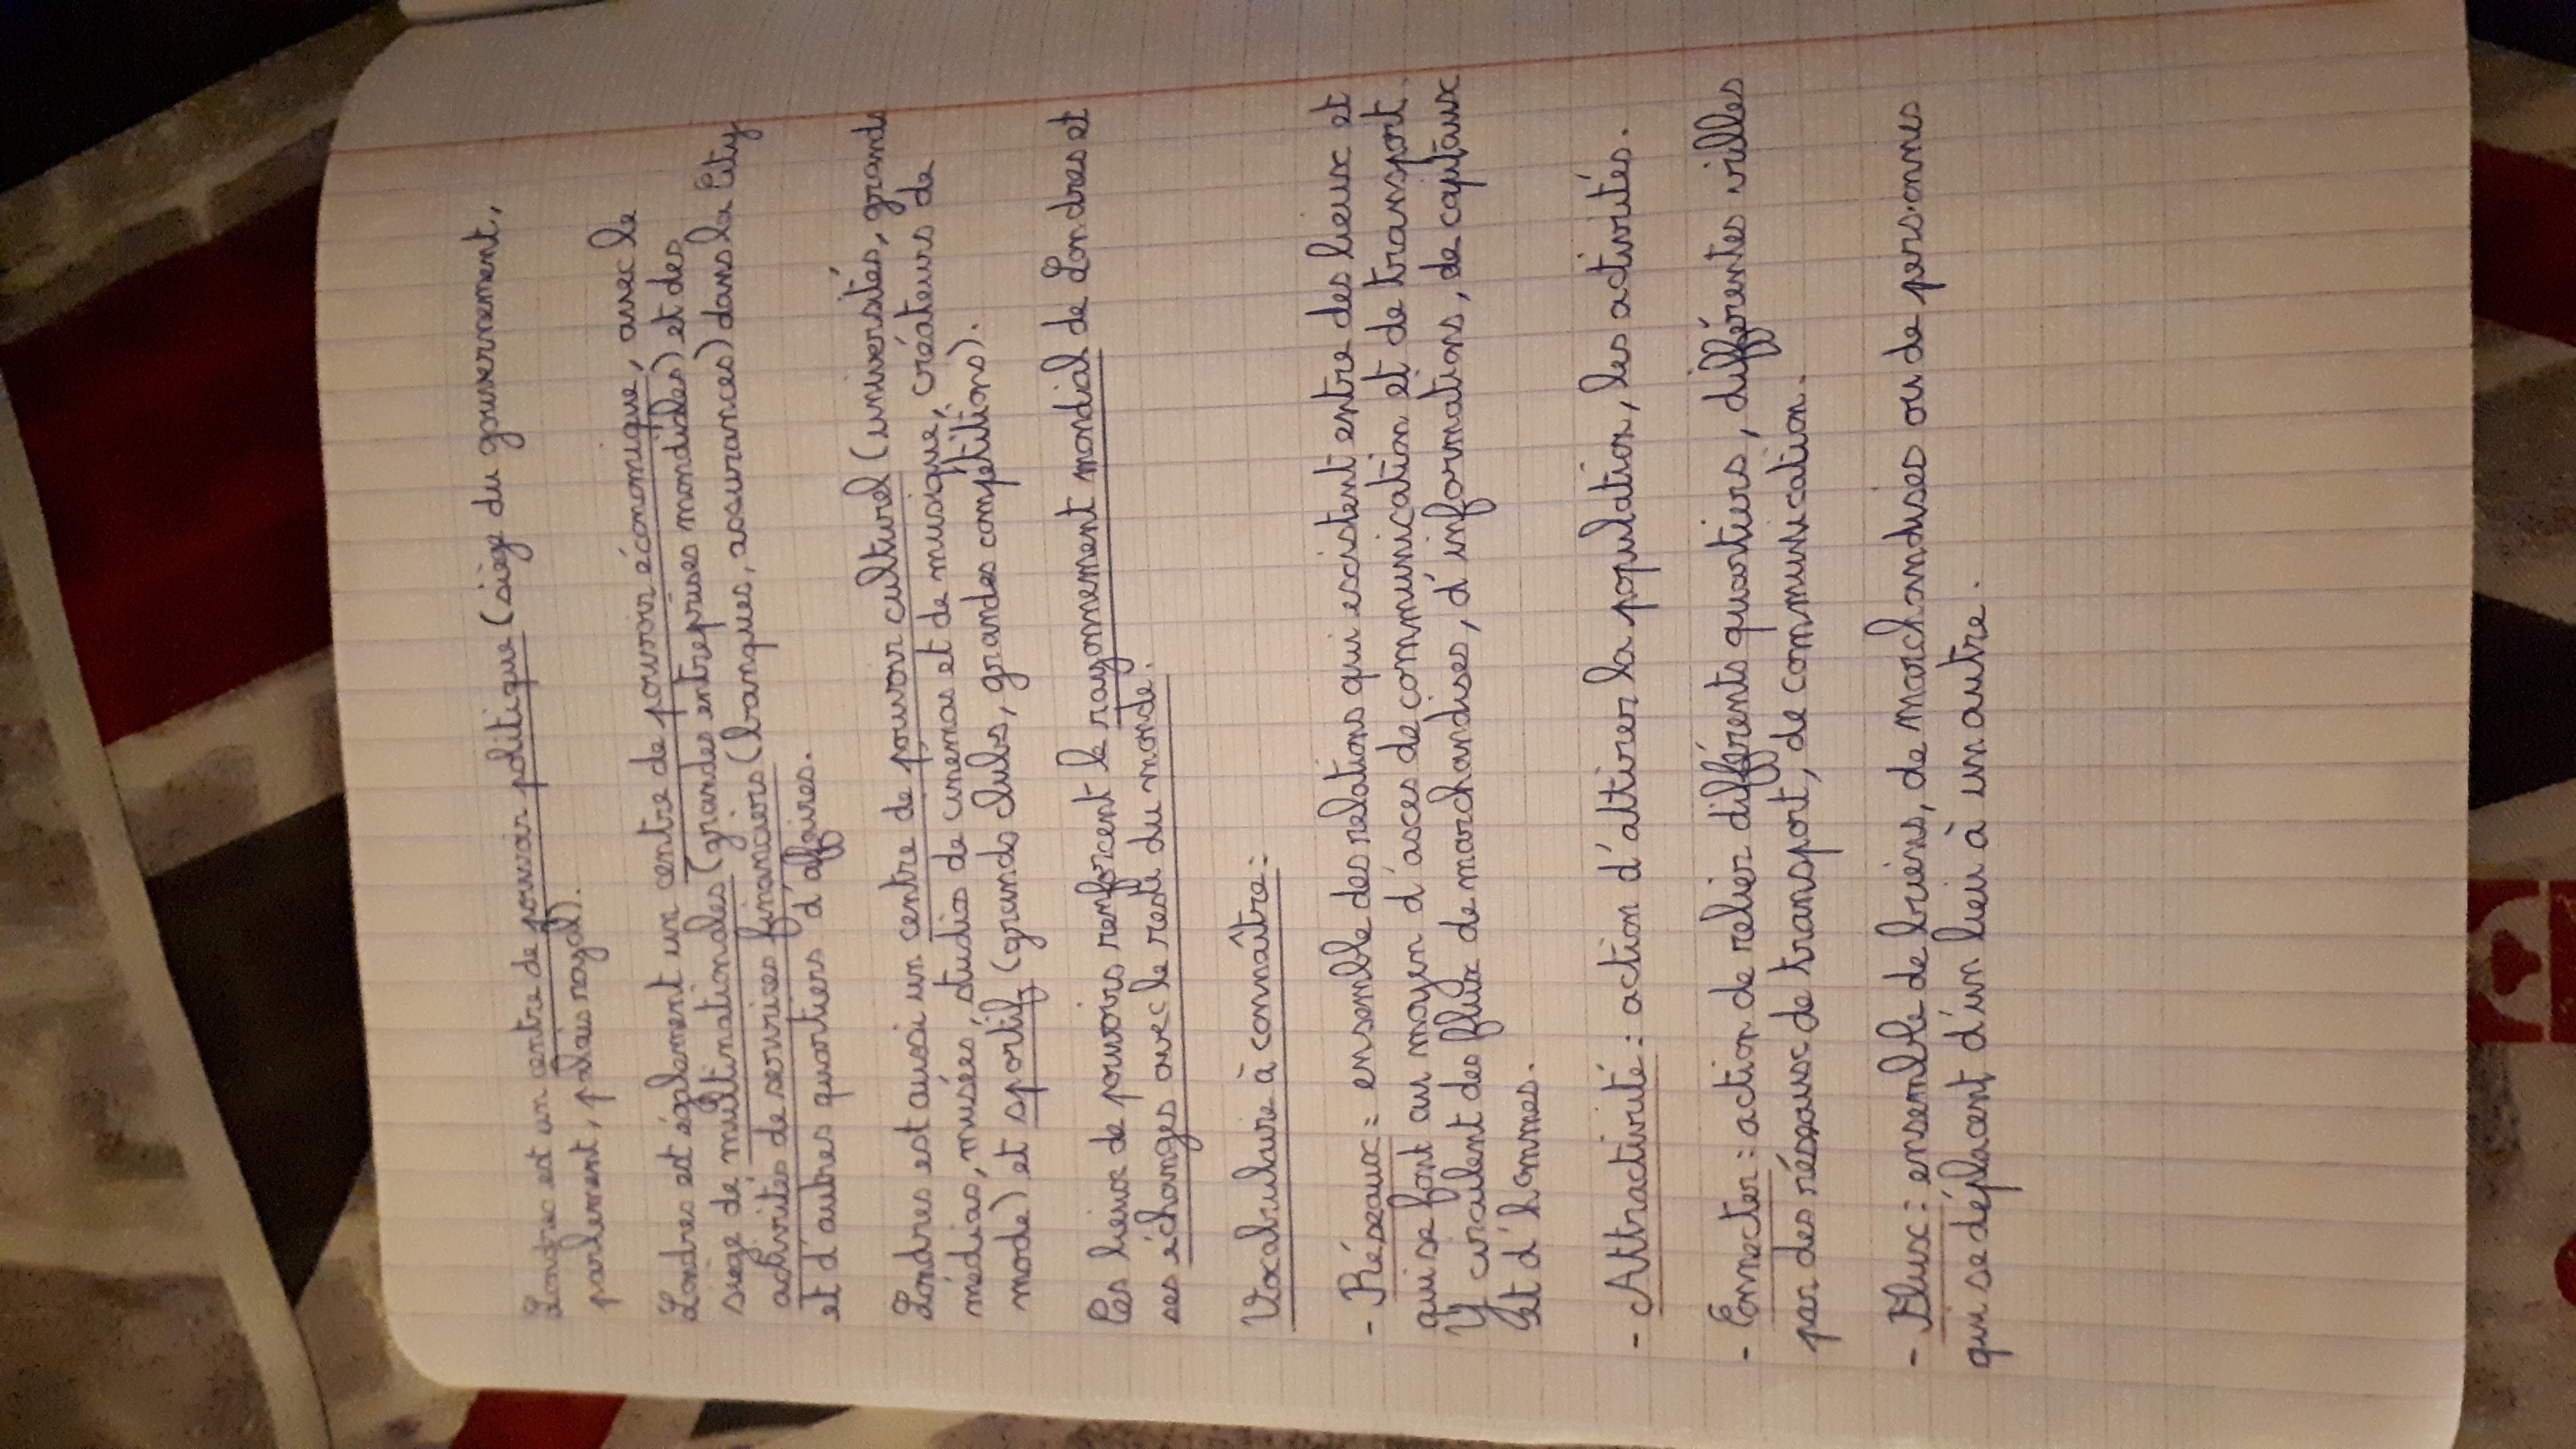 Londres est un centre de pouvoir politique (siège du gouvernement,
parlement, palais royal).
Londres est également un centre de pouvoir économique, avec le
siège de multinationales (grandes entreprises mondiales) et des
activités de services financiers (banques, assurances) dans la City
et d'autres quartiers d'affaires.
Londres est aussi un centre de pouvoir culturel (universités, grands
médias, musées, studios de cinémas et de musique, créateurs de
mode) et sportif (grands clubs, grandes compétitions).
Ces lieux de pouvoirs renforcent le rayonnement mondial de Londres et
ses échanges avec le reste du monde.
Vocabulaire à connaître :
- Réseaux : ensemble des relations qui existent entre des lieux et
qui se font au moyen d'axes de communication et de transport.
Y circulent des flux de marchandises, d'informations, de capitaux
et d'hommes.
- Attractivité : action d'attirer la population, les activités.
- Connecter : action de relier différents quartiers, différentes villes
par des réseaux de transport, de communication.
- Flux : ensemble de biens, de marchandises ou de personnes
qui se déplacent d'un lieu à un autre.